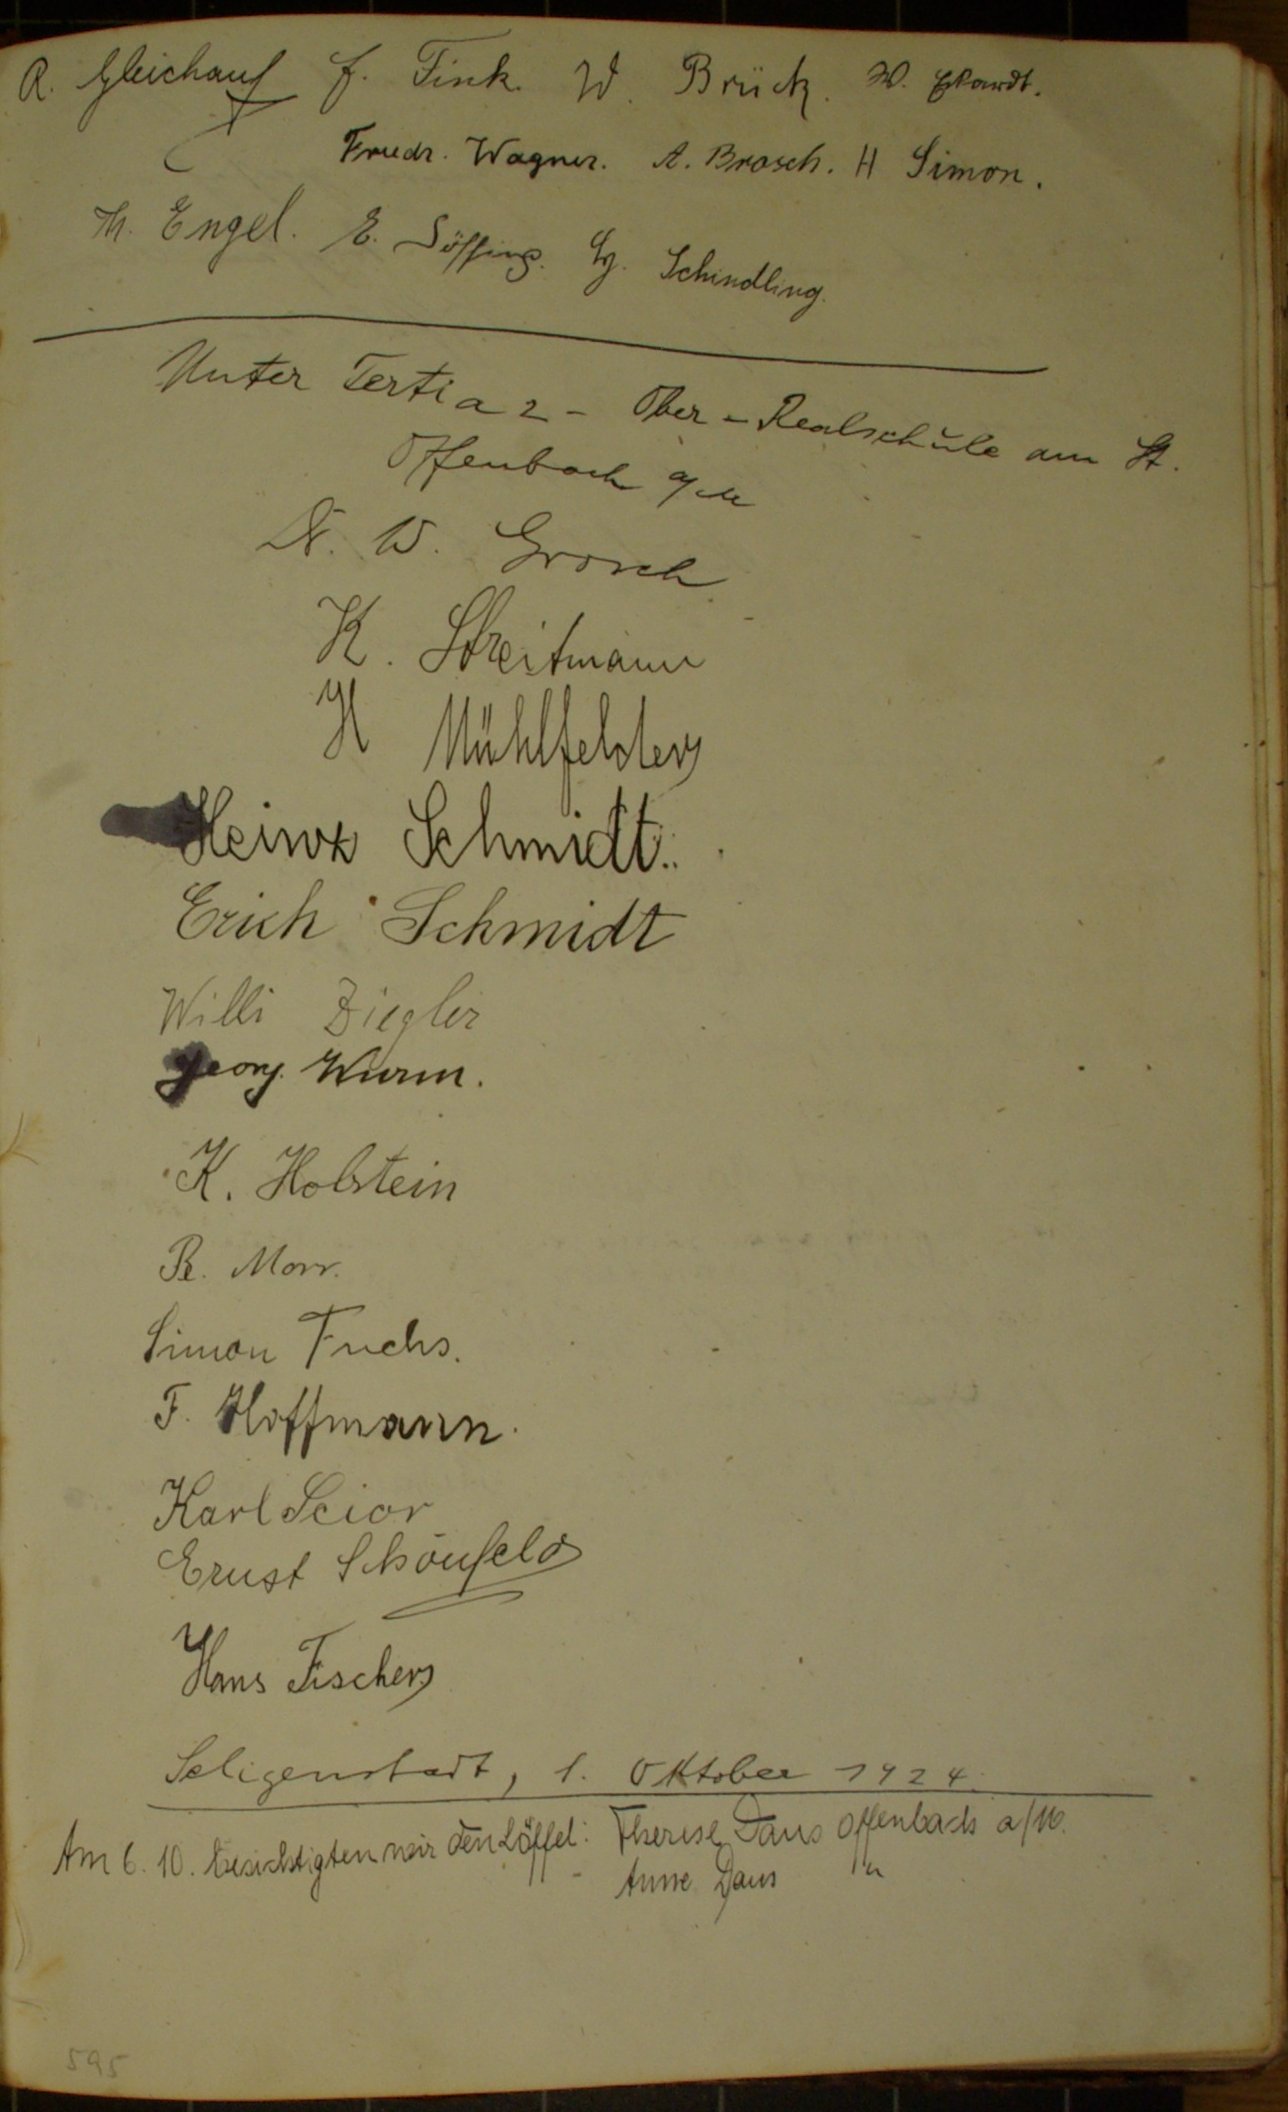 R. Gleichauf f. Fink. W. Brück. W. Ekardt.
Friedr. Wagner. A. Brosch. H Simon.
Th. Engel. E. Söffing. Gg. Schindling.
Unter Tertia 2 - Ober-Realschule am St.
Offenbach a/M
Dr. W. Grosch
K. Streitmann
H Mühlfelder
Heinz Schmidt.
Erich Schmidt
Willi Ziegler
Georg Wurm.
K. Holstein
R. Morr.
Simon Fuchs.
F. Hoffmann.
Karl Seior
Ernst Schönfeld
Hans Fischer
Seligenstadt, 1. Oktober 1924.
Am 6. 10. besichtigten wir den Löffel: Therese Daus Offenbach a/M.
Anne Daus "
595